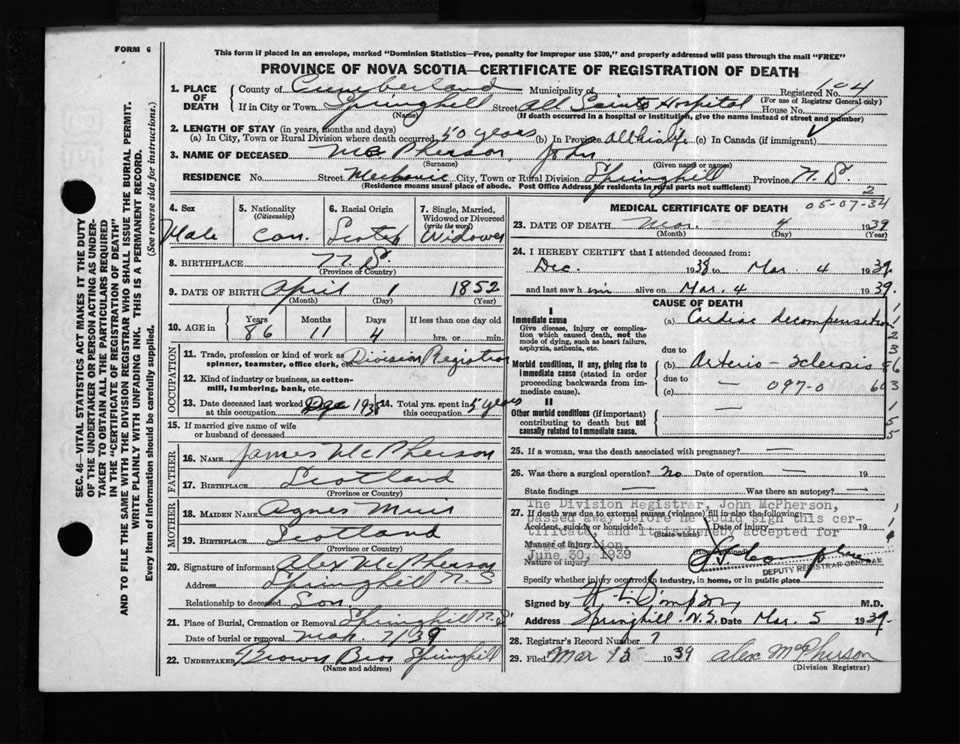 FORM 6
This form if placed in an envelope, marked "Dominion Statistics—Free, penalty for improper use $300," and properly addressed will pass through the mail "FREE"
PROVINCE OF NOVA SCOTIA—CERTIFICATE OF REGISTRATION OF DEATH
1. PLACE OF DEATH
County of Cumberland Municipality of Registered No. 104
(For use of Registrar General only)
If in City or Town Springhill Street All Saints Hospital House No.
(Name) (If death occurred in a hospital or institution, give the name instead of street and number)
2. LENGTH OF STAY (in years, months and days)
(a) In City, Town or Rural Division where death occurred 50 years (b) In Province all his life (c) In Canada (if immigrant)
3. NAME OF DECEASED McPherson, John
(Surname) (Given name or names)
RESIDENCE No. Street Mechanic City, Town or Rural Division Springhill Province N.S.
(Residence means usual place of abode. Post Office Address for residents in rural parts not sufficient)
4. Sex
Male
5. Nationality (Citizenship)
Can.
6. Racial Origin
Scotch
7. Single, Married, Widowed or Divorced (write the word)
Widower
8. BIRTHPLACE N.S.
(Province or Country)
9. DATE OF BIRTH April 1 1852
(Month) (Day) (Year)
10. AGE in
Years Months Days If less than one day old
86 11 4 hrs. or min.
OCCUPATION
11. Trade, profession or kind of work as spinner, teamster, office clerk, etc. Division Registrar
12. Kind of industry or business, as cotton-mill, lumbering, bank, etc.
13. Date deceased last worked at this occupation Dec 1938 14. Total yrs. spent in this occupation 5 years
15. If married give name of wife or husband of deceased
FATHER
16. NAME James McPherson
17. BIRTHPLACE Scotland
(Province or Country)
MOTHER
18. MAIDEN NAME Agnes Muir
19. BIRTHPLACE Scotland
(Province or Country)
20. Signature of informant Alex McPherson
Address Springhill N.S
Relationship to deceased Son
21. Place of Burial, Cremation or Removal Springhill N.S.
Date of burial or removal Mch 7/39
22. UNDERTAKER Brown Bros Springhill
(Name and address)
MEDICAL CERTIFICATE OF DEATH
2
05-07-34
23. DATE OF DEATH Mar. 4 1939
(Month) (Day) (Year)
24. I HEREBY CERTIFY that I attended deceased from:
Dec. 1938 to Mar. 4 1939.
and last saw him alive on Mar. 4 1939.
CAUSE OF DEATH
I
Immediate cause
Give disease, injury or complication which caused death, not the mode of dying, such as heart failure, asphyxia, asthenia, etc.
(a) Cardiac decompensation
due to
Morbid conditions, if any, giving rise to Immediate cause (stated in order proceeding backwards from immediate cause).
(b) Arterio-sclerosis
due to
(c) — 097-0
II
Other morbid conditions (if important) contributing to death but not causally related to Immediate cause.
25. If a woman, was the death associated with pregnancy? —
26. Was there a surgical operation? No Date of operation —
State findings — Was there an autopsy? —
27. If death was due to external causes (violence) fill in also the following—
Accident, suicide or homicide? Date of injury 19
(State which)
Manner of injury
Nature of injury
The Division Registrar, John McPherson,
passed away before he could sign this cer-
June 30, 1939
DEPUTY REGISTRAR GENERAL
Specify whether injury occurred in industry, in home, or in public place
Signed by H L Simpson M.D.
Address Springhill N.S. Date Mar. 5 1939.
28. Registrar's Record Number 7
29. Filed Mar 15 1939 Alex McPherson
(Division Registrar)
SEC. 46—VITAL STATISTICS ACT MAKES IT THE DUTY
OF THE UNDERTAKER OR PERSON ACTING AS UNDER-
TAKER TO OBTAIN ALL THE PARTICULARS REQUIRED
IN THE "CERTIFICATE OF REGISTRATION OF DEATH"
AND TO FILE THE SAME WITH THE DIVISION REGISTRAR WHO SHALL ISSUE THE BURIAL PERMIT.
WRITE PLAINLY WITH UNFADING INK. THIS IS A PERMANENT RECORD.
Every item of information should be carefully supplied. (See reverse side for instructions.)